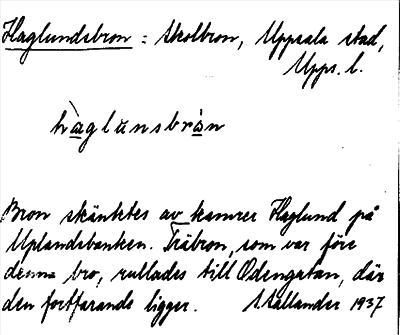 Haglundsbron = Skolbron, Uppsala stad,
Upps. l.
hàglunsbròn
Bron skänktes av kamrer Haglund på
Uplandsbanken. Träbron, som var före
denna bro, rullades till Odengatan, där
den fortfarande ligger. Stallander 1937